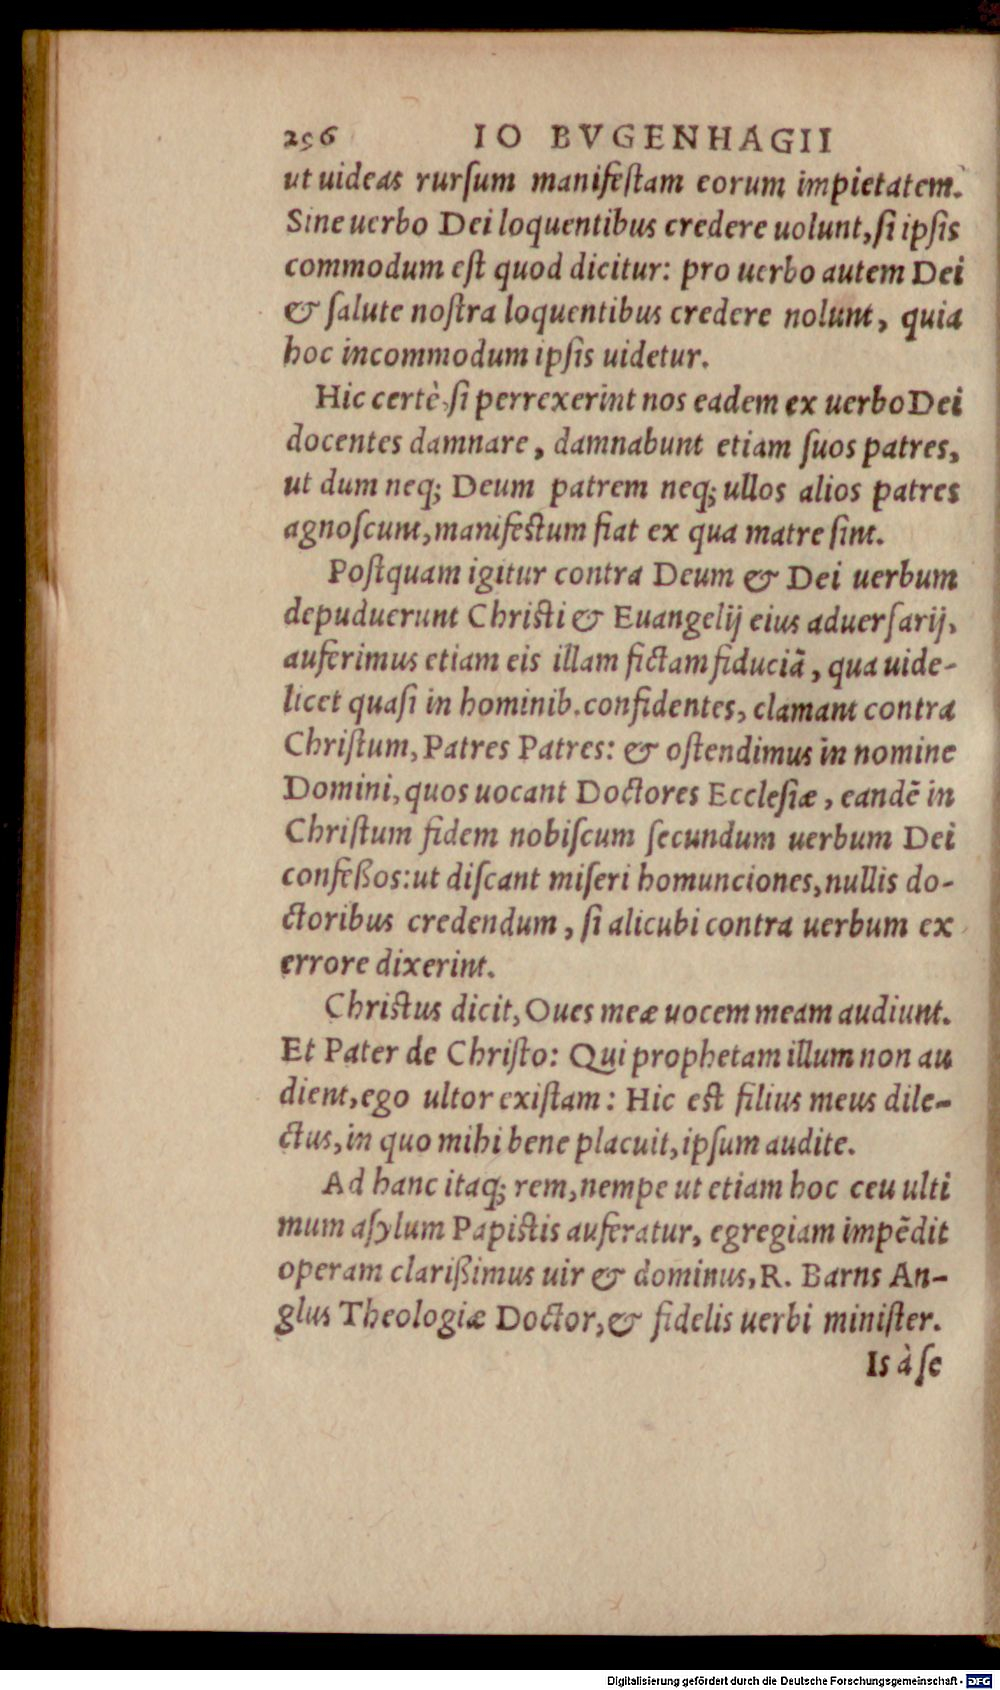 256 IO BVGENHAGII
ut uideas rurſum manifeſtam eorum impietatem.
Sine uerbo Dei loquentibus credere uolunt, ſi ipſis
commodum eſt quod dicitur: pro uerbo autem Dei
& ſalute noſtra loquentibus credere nolunt, quia
hoc incommodum ipſis uidetur.
Hic certè, ſi perrexerint nos eadem ex uerbo Dei
docentes damnare, damnabunt etiam ſuos patres,
ut dum neq; Deum patrem neq; ullos alios patres
agnoſcunt, manifeſtum fiat ex qua matre ſint.
Poſtquam igitur contra Deum & Dei uerbum
depuduerunt Chriſti & Euangelij eius aduerſarij,
auferimus etiam eis illam fictam fiduciā, qua uide-
licet quaſi in hominib. confidentes, clamant contra
Chriſtum, Patres Patres: & oſtendimus in nomine
Domini, quos uocant Doctores Eccleſiæ, eandē in
Chriſtum fidem nobiſcum ſecundum uerbum Dei
confeßos: ut diſcant miſeri homunciones, nullis do-
ctoribus credendum, ſi alicubi contra uerbum ex
errore dixerint.
Chriſtus dicit, Oues meæ uocem meam audiunt.
Et Pater de Chriſto: Qui prophetam illum non au
dient, ego ultor exiſtam: Hic eſt filius meus dile-
ctus, in quo mihi bene placuit, ipſum audite.
Ad hanc itaq; rem, nempe ut etiam hoc ceu ulti
mum aſylum Papiſtis auferatur, egregiam impēdit
operam clarißimus uir & dominus, R. Barns An-
glus Theologiæ Doctor, & fidelis uerbi miniſter.
Is à ſe
Digitalisierung gefördert durch die Deutsche Forschungsgemeinschaft - DFG